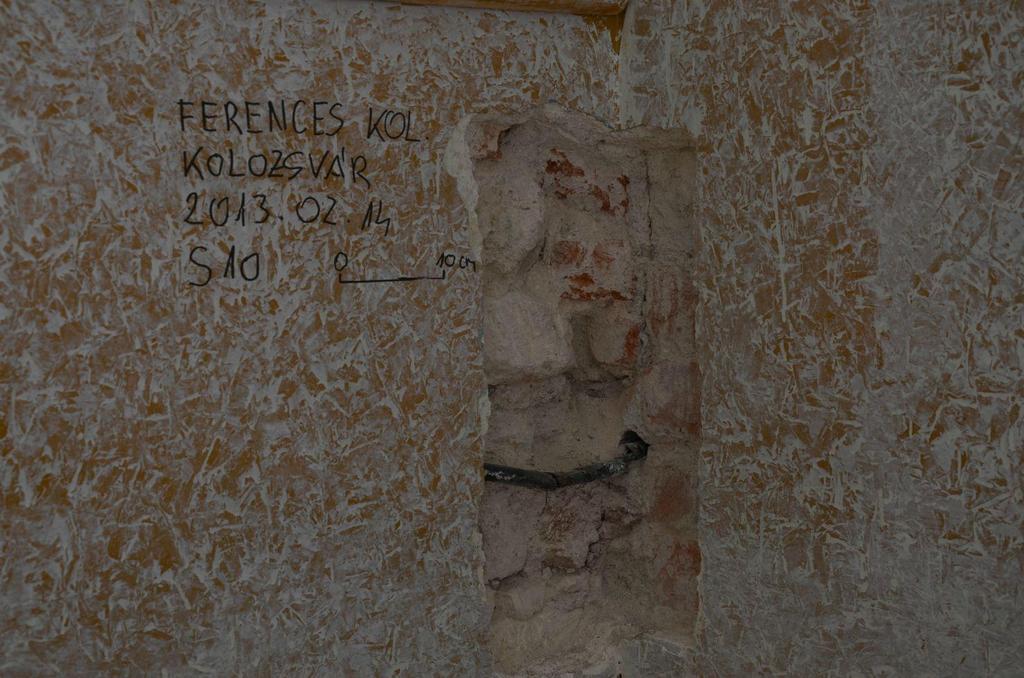 FERENCES KOL.
KOLOZSVÁR
2013.02.14
S10 0 10 cm